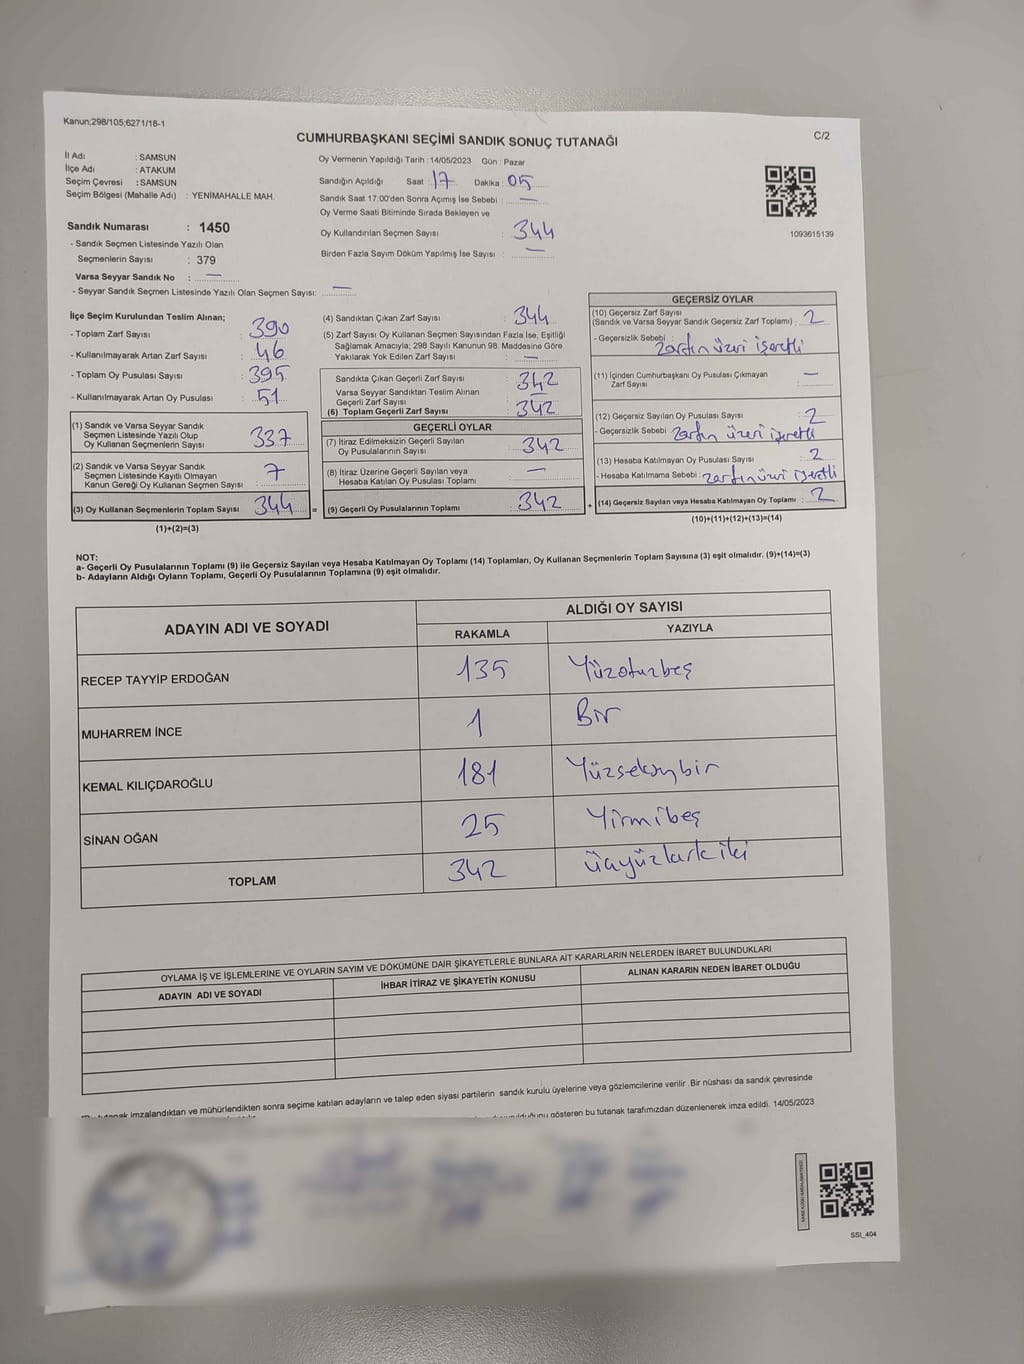 Kanun;298/105;6271/18-1
C/2
CUMHURBAŞKANI SEÇİMİ SANDIK SONUÇ TUTANAĞI
İl Adı : SAMSUN
İlçe Adı : ATAKUM
Seçim Çevresi : SAMSUN
Seçim Bölgesi (Mahalle Adı) : YENİMAHALLE MAH.
Sandık Numarası : 1450
- Sandık Seçmen Listesinde Yazılı Olan
Seçmenlerin Sayısı : 379
Varsa Seyyar Sandık No : —
- Seyyar Sandık Seçmen Listesinde Yazılı Olan Seçmen Sayısı: —
Oy Vermenin Yapıldığı Tarih : 14/05/2023 Gün : Pazar
Sandığın Açıldığı Saat : 17 Dakika : 05
Sandık Saat 17.00'den Sonra Açımış İse Sebebi : —
Oy Verme Saati Bitiminde Sırada Bekleyen ve
Oy Kullandırılan Seçmen Sayısı : 344
Birden Fazla Sayım Döküm Yapılmış İse Sayısı : —
1093615139
İlçe Seçim Kurulundan Teslim Alınan;
- Toplam Zarf Sayısı : 390
- Kullanılmayarak Artan Zarf Sayısı : 46
- Toplam Oy Pusulası Sayısı : 395
- Kullanılmayarak Artan Oy Pusulası : 51
(1) Sandık ve Varsa Seyyar Sandık
Seçmen Listesinde Yazılı Olup
Oy Kullanan Seçmenlerin Sayısı : 337
(2) Sandık ve Varsa Seyyar Sandık
Seçmen Listesinde Kayıtlı Olmayan
Kanun Gereği Oy Kullanan Seçmen Sayısı : 7
(3) Oy Kullanan Seçmenlerin Toplam Sayısı : 344
(1)+(2)=(3)
=
(4) Sandıktan Çıkan Zarf Sayısı : 344
(5) Zarf Sayısı Oy Kullanan Seçmen Sayısından Fazla İse, Eşitliği
Sağlamak Amacıyla; 298 Sayılı Kanunun 98. Maddesine Göre
Yakılarak Yok Edilen Zarf Sayısı : —
Sandıkta Çıkan Geçerli Zarf Sayısı : 342
Varsa Seyyar Sandıktan Teslim Alınan
Geçerli Zarf Sayısı : —
(6) Toplam Geçerli Zarf Sayısı : 342
GEÇERLİ OYLAR
(7) İtiraz Edilmeksizin Geçerli Sayılan
Oy Pusulasının Sayısı : 342
(8) İtiraz Üzerine Geçerli Sayılan veya
Hesaba Katılan Oy Pusulası Toplamı : —
(9) Geçerli Oy Pusulalarının Toplamı : 342
+
GEÇERSİZ OYLAR
(10) Geçersiz Zarf Sayısı
(Sandık ve Varsa Seyyar Sandık Geçersiz Zarf Toplamı) : 2
- Geçersizlik Sebebi : zarfın üzeri işaretli
(11) İçinden Cumhurbaşkanı Oy Pusulası Çıkmayan
Zarf Sayısı : —
(12) Geçersiz Sayılan Oy Pusulası Sayısı : 2
- Geçersizlik Sebebi : zarfın üzeri işaretli
(13) Hesaba Katılmayan Oy Pusulası Sayısı : 2
- Hesaba Katılmama Sebebi : zarfın üzeri işaretli
(14) Geçersiz Sayılan veya Hesaba Katılmayan Oy Toplamı : 2
(10)+(11)+(12)+(13)=(14)
NOT:
a- Geçerli Oy Pusulalarının Toplamı (9) ile Geçersiz Sayılan veya Hesaba Katılmayan Oy Toplamı (14) Toplamları, Oy Kullanan Seçmenlerin Toplam Sayısına (3) eşit olmalıdır. (9)+(14)=(3)
b- Adayların Aldığı Oyların Toplamı, Geçerli Oy Pusulalarının Toplamına (9) eşit olmalıdır.
ADAYIN ADI VE SOYADI
ALDIĞI OY SAYISI
RAKAMLA YAZIYLA
RECEP TAYYİP ERDOĞAN 135 Yüzotuzbeş
MUHARREM İNCE 1 Bir
KEMAL KILIÇDAROĞLU 181 Yüzseksenbir
SİNAN OĞAN 25 Yirmibeş
TOPLAM 342 üçyüzkırkiki
OYLAMA İŞ VE İŞLEMLERİNE VE OYLARIN SAYIM VE DÖKÜMÜNE DAİR ŞİKAYETLERLE BUNLARA AİT KARARLARIN NELERDEN İBARET BULUNDUKLARI
ADAYIN ADI VE SOYADI İHBAR İTİRAZ VE ŞİKAYETİN KONUSU ALINAN KARARIN NEDEN İBARET OLDUĞU
imzalandıktan ve mühürlendikten sonra seçime katılan adayların ve talep eden siyasi partilerin sandık kurulu üyelerine veya gözlemcilerine verilir .Bir nüshası da sandık çevresinde
gösteren bu tutanak tarafımızdan düzenlenerek imza edildi. 14/05/2023
SSI_404